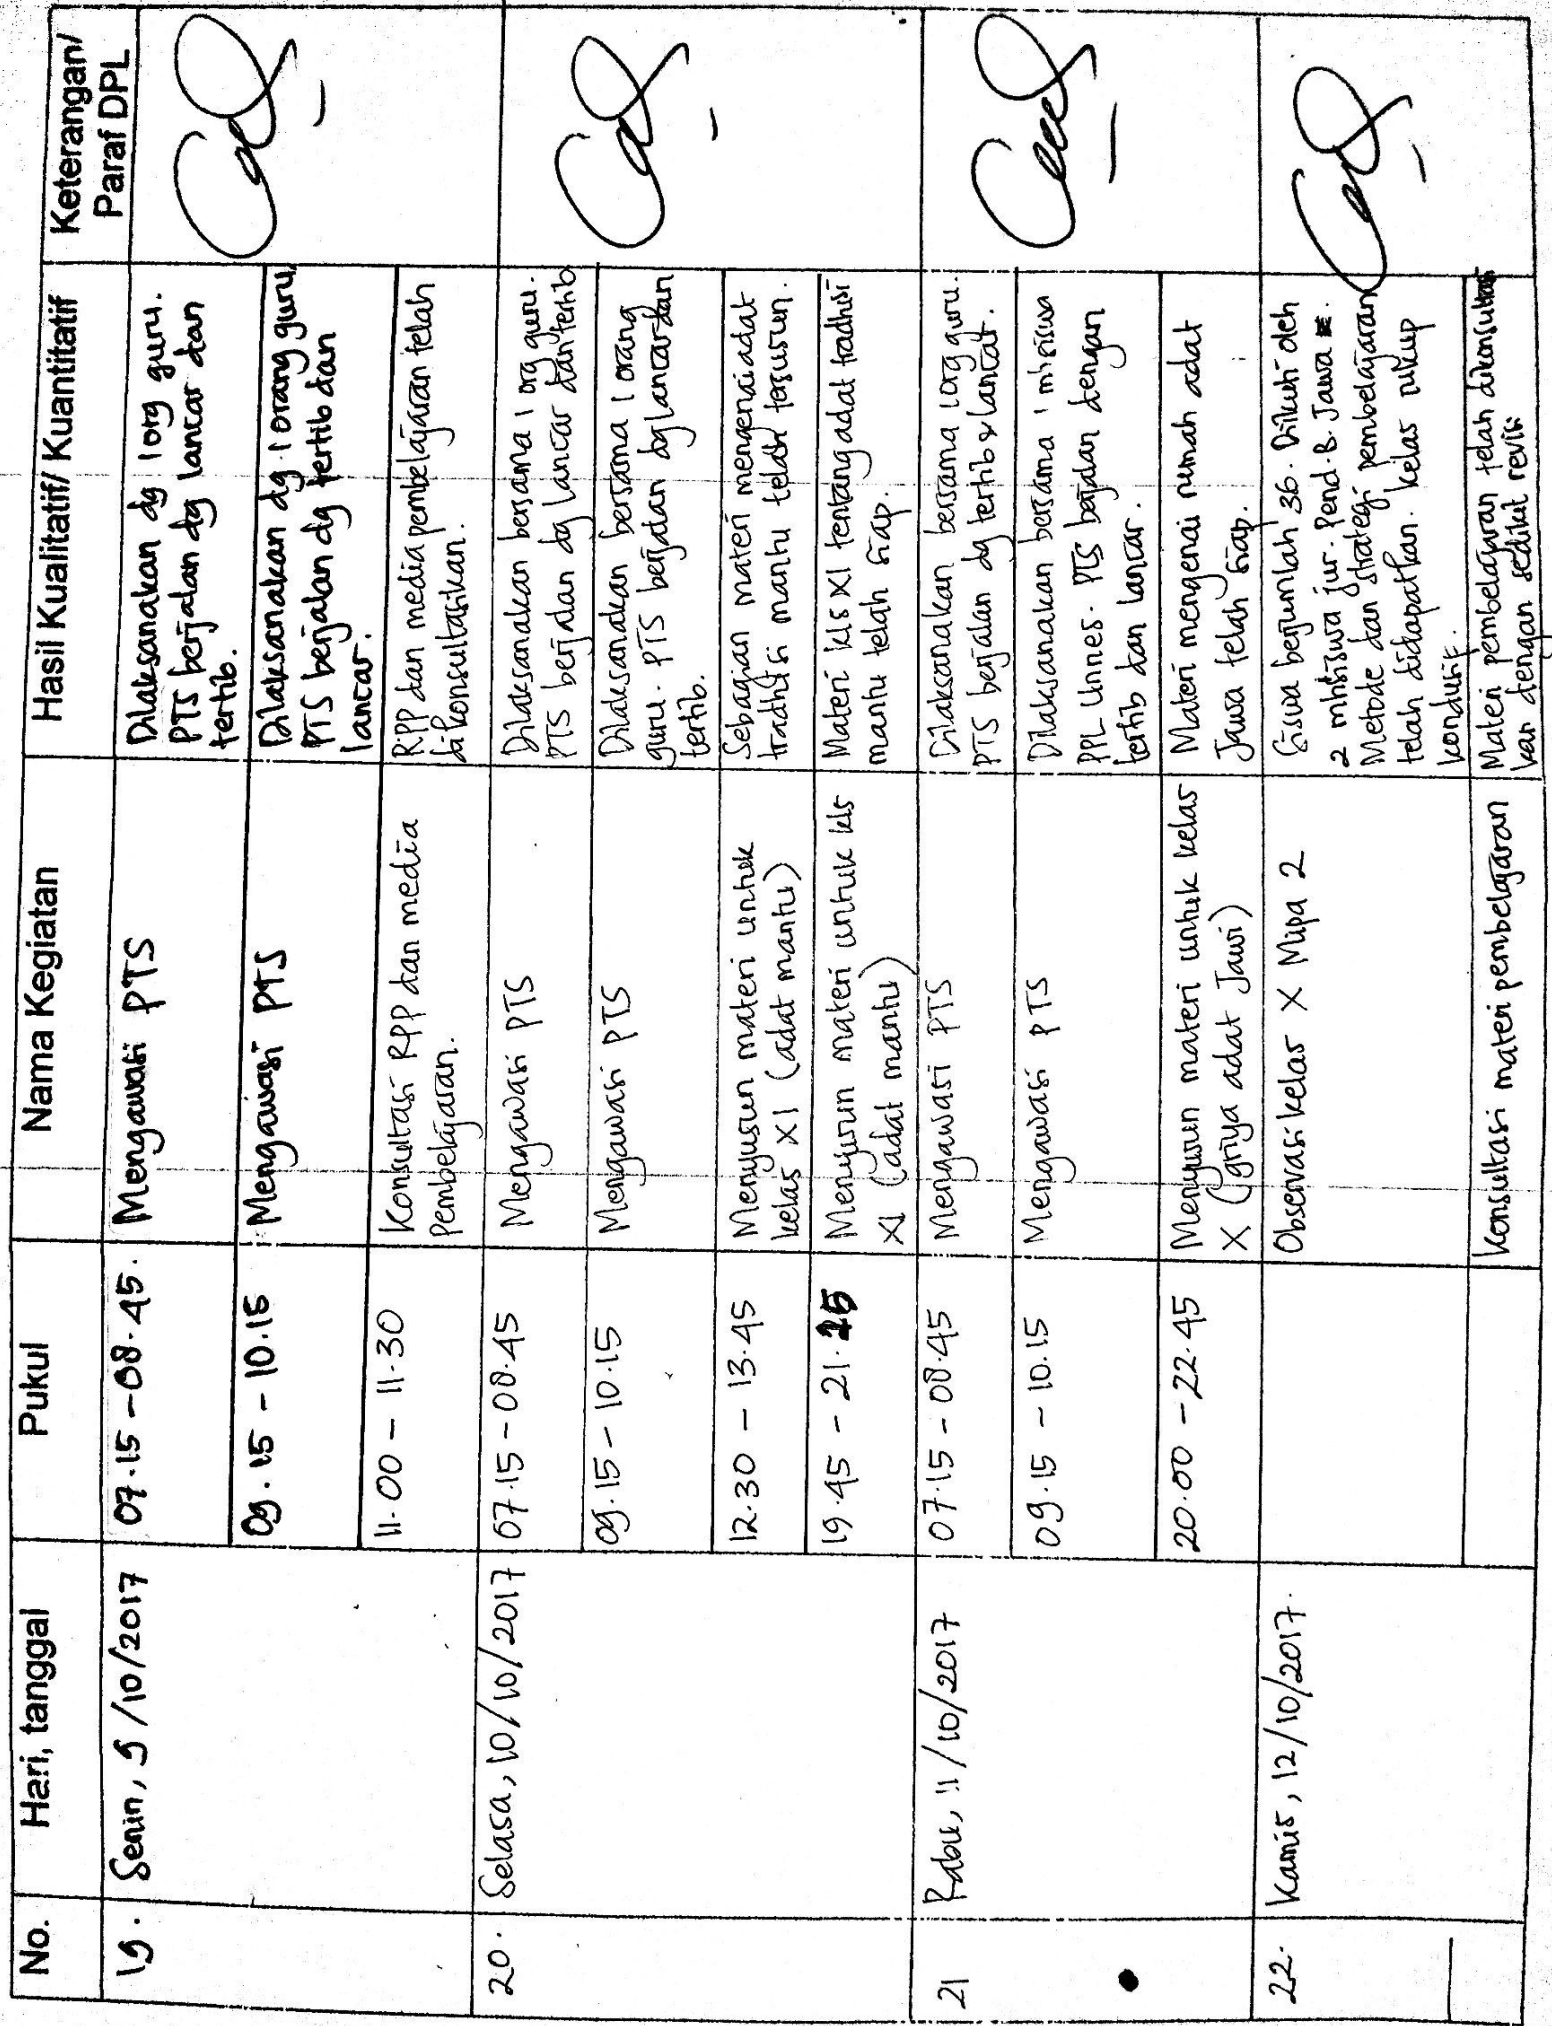 No.
Hari, tanggal
Pukul
Nama Kegiatan
Hasil Kualitatif/ Kuantitatif
Keterangan/
Paraf DPL
19.
Senin, 9/10/2017
07.15 - 08.45.
Mengawasi PTS
Dilaksanakan dg 1 org guru.
PTS berjalan dg lancar dan
tertib.
09.15 - 10.15
Mengawasi PTS
Dilaksanakan dg 1 orang guru,
PTS berjalan dg tertib dan
lancar.
11.00 - 11.30
Konsultasi RPP dan media
Pembelajaran.
RPP dan media pembelajaran telah
dikonsultasikan.
20.
Selasa, 10/10/2017
07.15 - 08.45
Mengawasi PTS
Dilaksanakan bersama 1 org guru.
PTS berjalan dg lancar dan tertib
09.15 - 10.15
Mengawasi PTS
Dilaksanakan bersama 1 orang
guru. PTS berjalan dg lancar dan
tertib.
12.30 - 13.45
Menyusun materi untuk
kelas XI (adat mantu)
Sebagian materi mengenai adat
tradhisi mantu telah tersusun.
19.45 - 21.25
Menyusun materi untuk kls
XI (adat mantu)
Materi kls XI tentang adat tradhisi
mantu telah siap.
21
Rabu, 11/10/2017
07.15 - 08.45
Mengawasi PTS
Dilaksanakan bersama 1 org guru.
PTS berjalan dg tertib & lancar.
09.15 - 10.15
Mengawasi PTS
Dilaksanakan bersama 1 mhsiswa
PPL Unnes. PTS berjalan dengan
tertib dan lancar.
20.00 - 22.45
Menyusun materi untuk kelas
X (griya adat Jawi)
Materi mengenai rumah adat
Jawa telah siap.
22.
Kamis, 12/10/2017.
Observasi kelas X Mipa 2
Siswa berjumlah 36. Diikuti oleh
2 mhsiswa jur. Pend. B. Jawa
Metode dan strategi pembelajaran
telah didapatkan. kelas cukup
kondusif.
Konsultasi materi pembelajaran
Materi pembelajaran telah dikonsultasi
kan dengan sedikit revisi